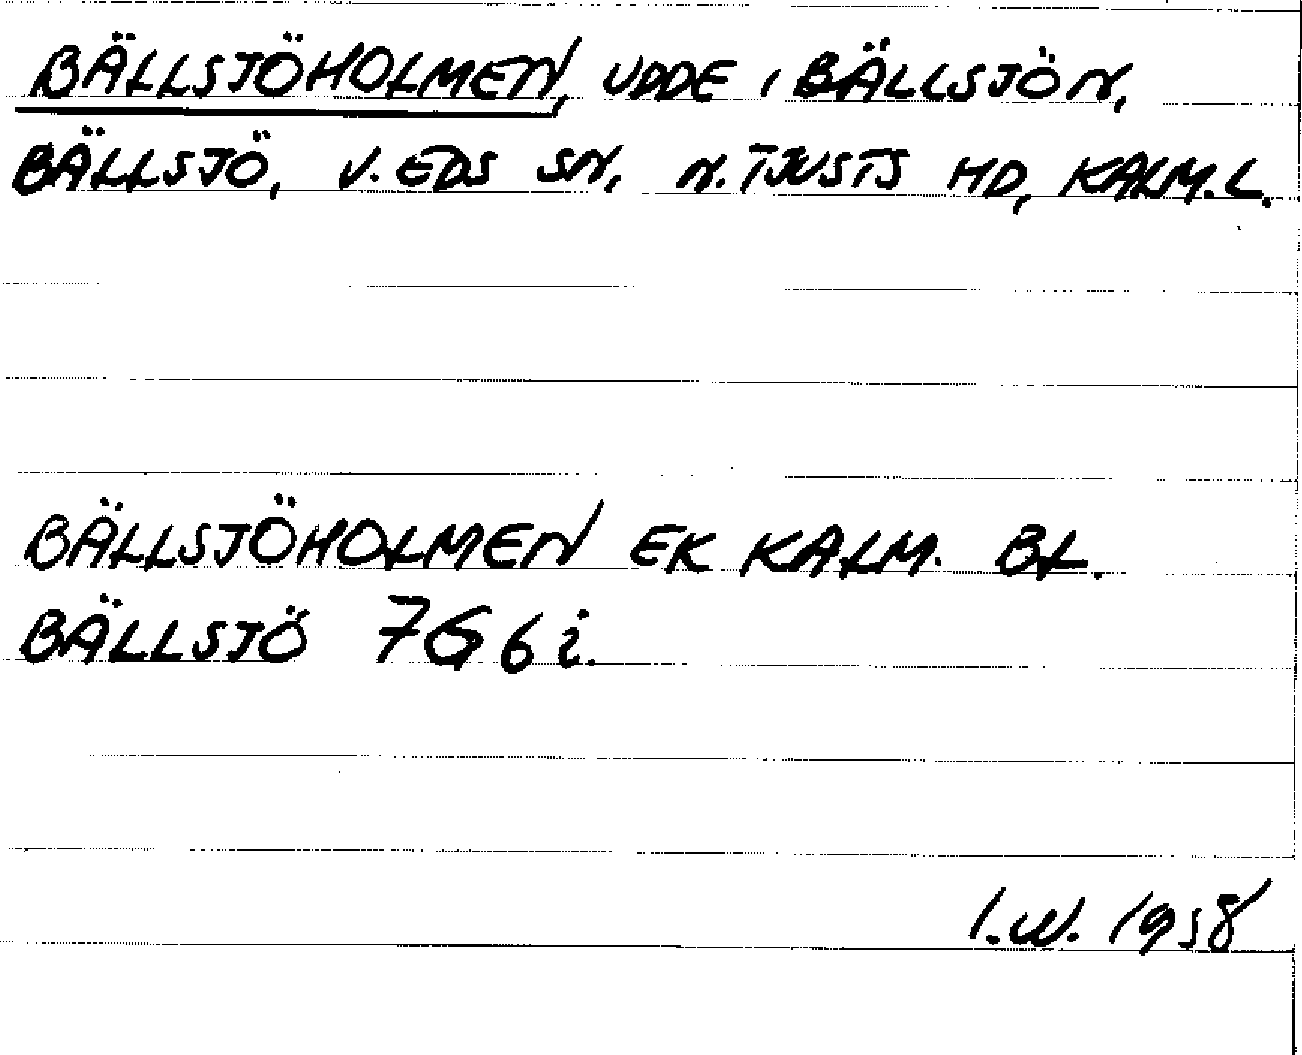 BÄLLSJÖHOLMEN, UDDE I BÄLLSJÖN,
BÄLLSJÖ, V. EDS SN, N. TJUSTS HD, KALM. L.
BÄLLSJÖHOLMEN EK KALM. BL.
BÄLLSJÖ 7G6i.
I.W. 1958